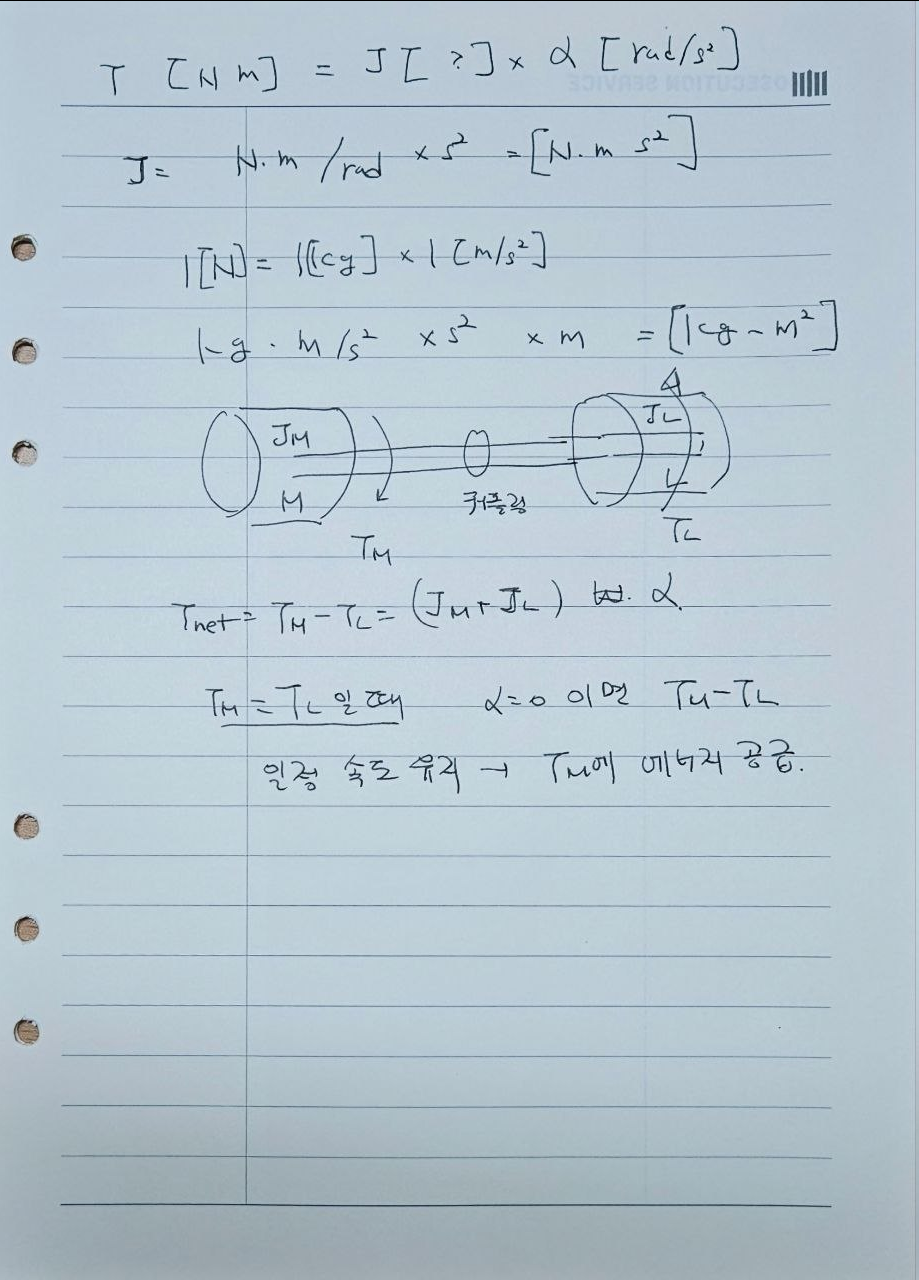 T [N m] = J [ ? ] × α [rad/s²]
J = N·m /rad × s² = [N·m s²]
1[N] = 1[kg] × 1 [m/s²]
kg · m/s² × s² × m = [kg-m²]
J_M J_L
M 커플링 L
T_M T_L
T_net = T_M - T_L = (J_M + J_L) α.
T_M = T_L 일 때 α=0 이면 T_M-T_L
일정 속도 유지 → T_M에 에너지 공급.